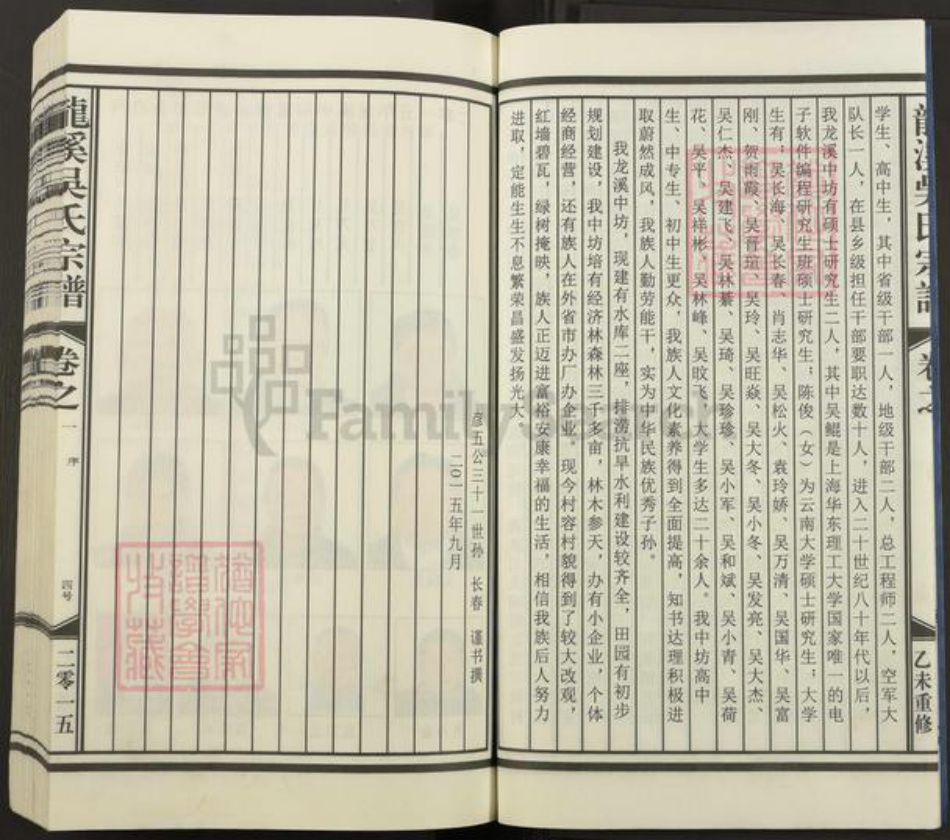 龍溪吳氏宗譜
卷之
乙未重修
学生、高中生，其中省级干部一人，地级干部二人，总工程师二人，空军大
队长一人，在县乡级担任干部要职达数十人，进入二十世纪八十年代以后，
我龙溪中坊有硕士研究生二人，其中吴鲲是上海华东理工大学国家唯一的电
子软件编程研究生班硕士研究生；陈俊（女）为云南大学硕士研究生；大学
生有：吴长海、吴长春、肖志华、吴松火、袁玲娇、吴万清、吴国华、吴富
刚、贺雨霞、吴晋瑄、吴玲、吴旺焱、吴大冬、吴小冬、吴发亮、吴大杰、
吴仁杰、吴建飞、吴林綦、吴琦、吴珍珍、吴小军、吴和斌、吴小青、吴荷
花、吴平、吴祥彬、吴林峰、吴旼飞、大学生多达二十余人。我中坊高中
生、中专生、初中生更众，我族人文化素养得到全面提高，知书达理积极进
取蔚然成风，我族人勤劳能干，实为中华民族优秀子孙。
我龙溪中坊，现建有水库二座，排涝抗旱水利建设较齐全，田园有初步
规划建设，我中坊培有经济林森林三千多亩，林木参天，办有小企业，个体
经商经营，还有族人在外省市办厂办企业。现今村容村貌得到了较大改观，
红墙碧瓦，绿树掩映，族人正迈进富裕安康幸福的生活，相信我族后人努力
进取，定能生生不息繁荣昌盛发扬光大。
彦五公三十一世孙 长春 谨书撰
二〇一五年九月
龍溪吳氏宗譜
卷之一
序
四号
二零一五
FamilySearch